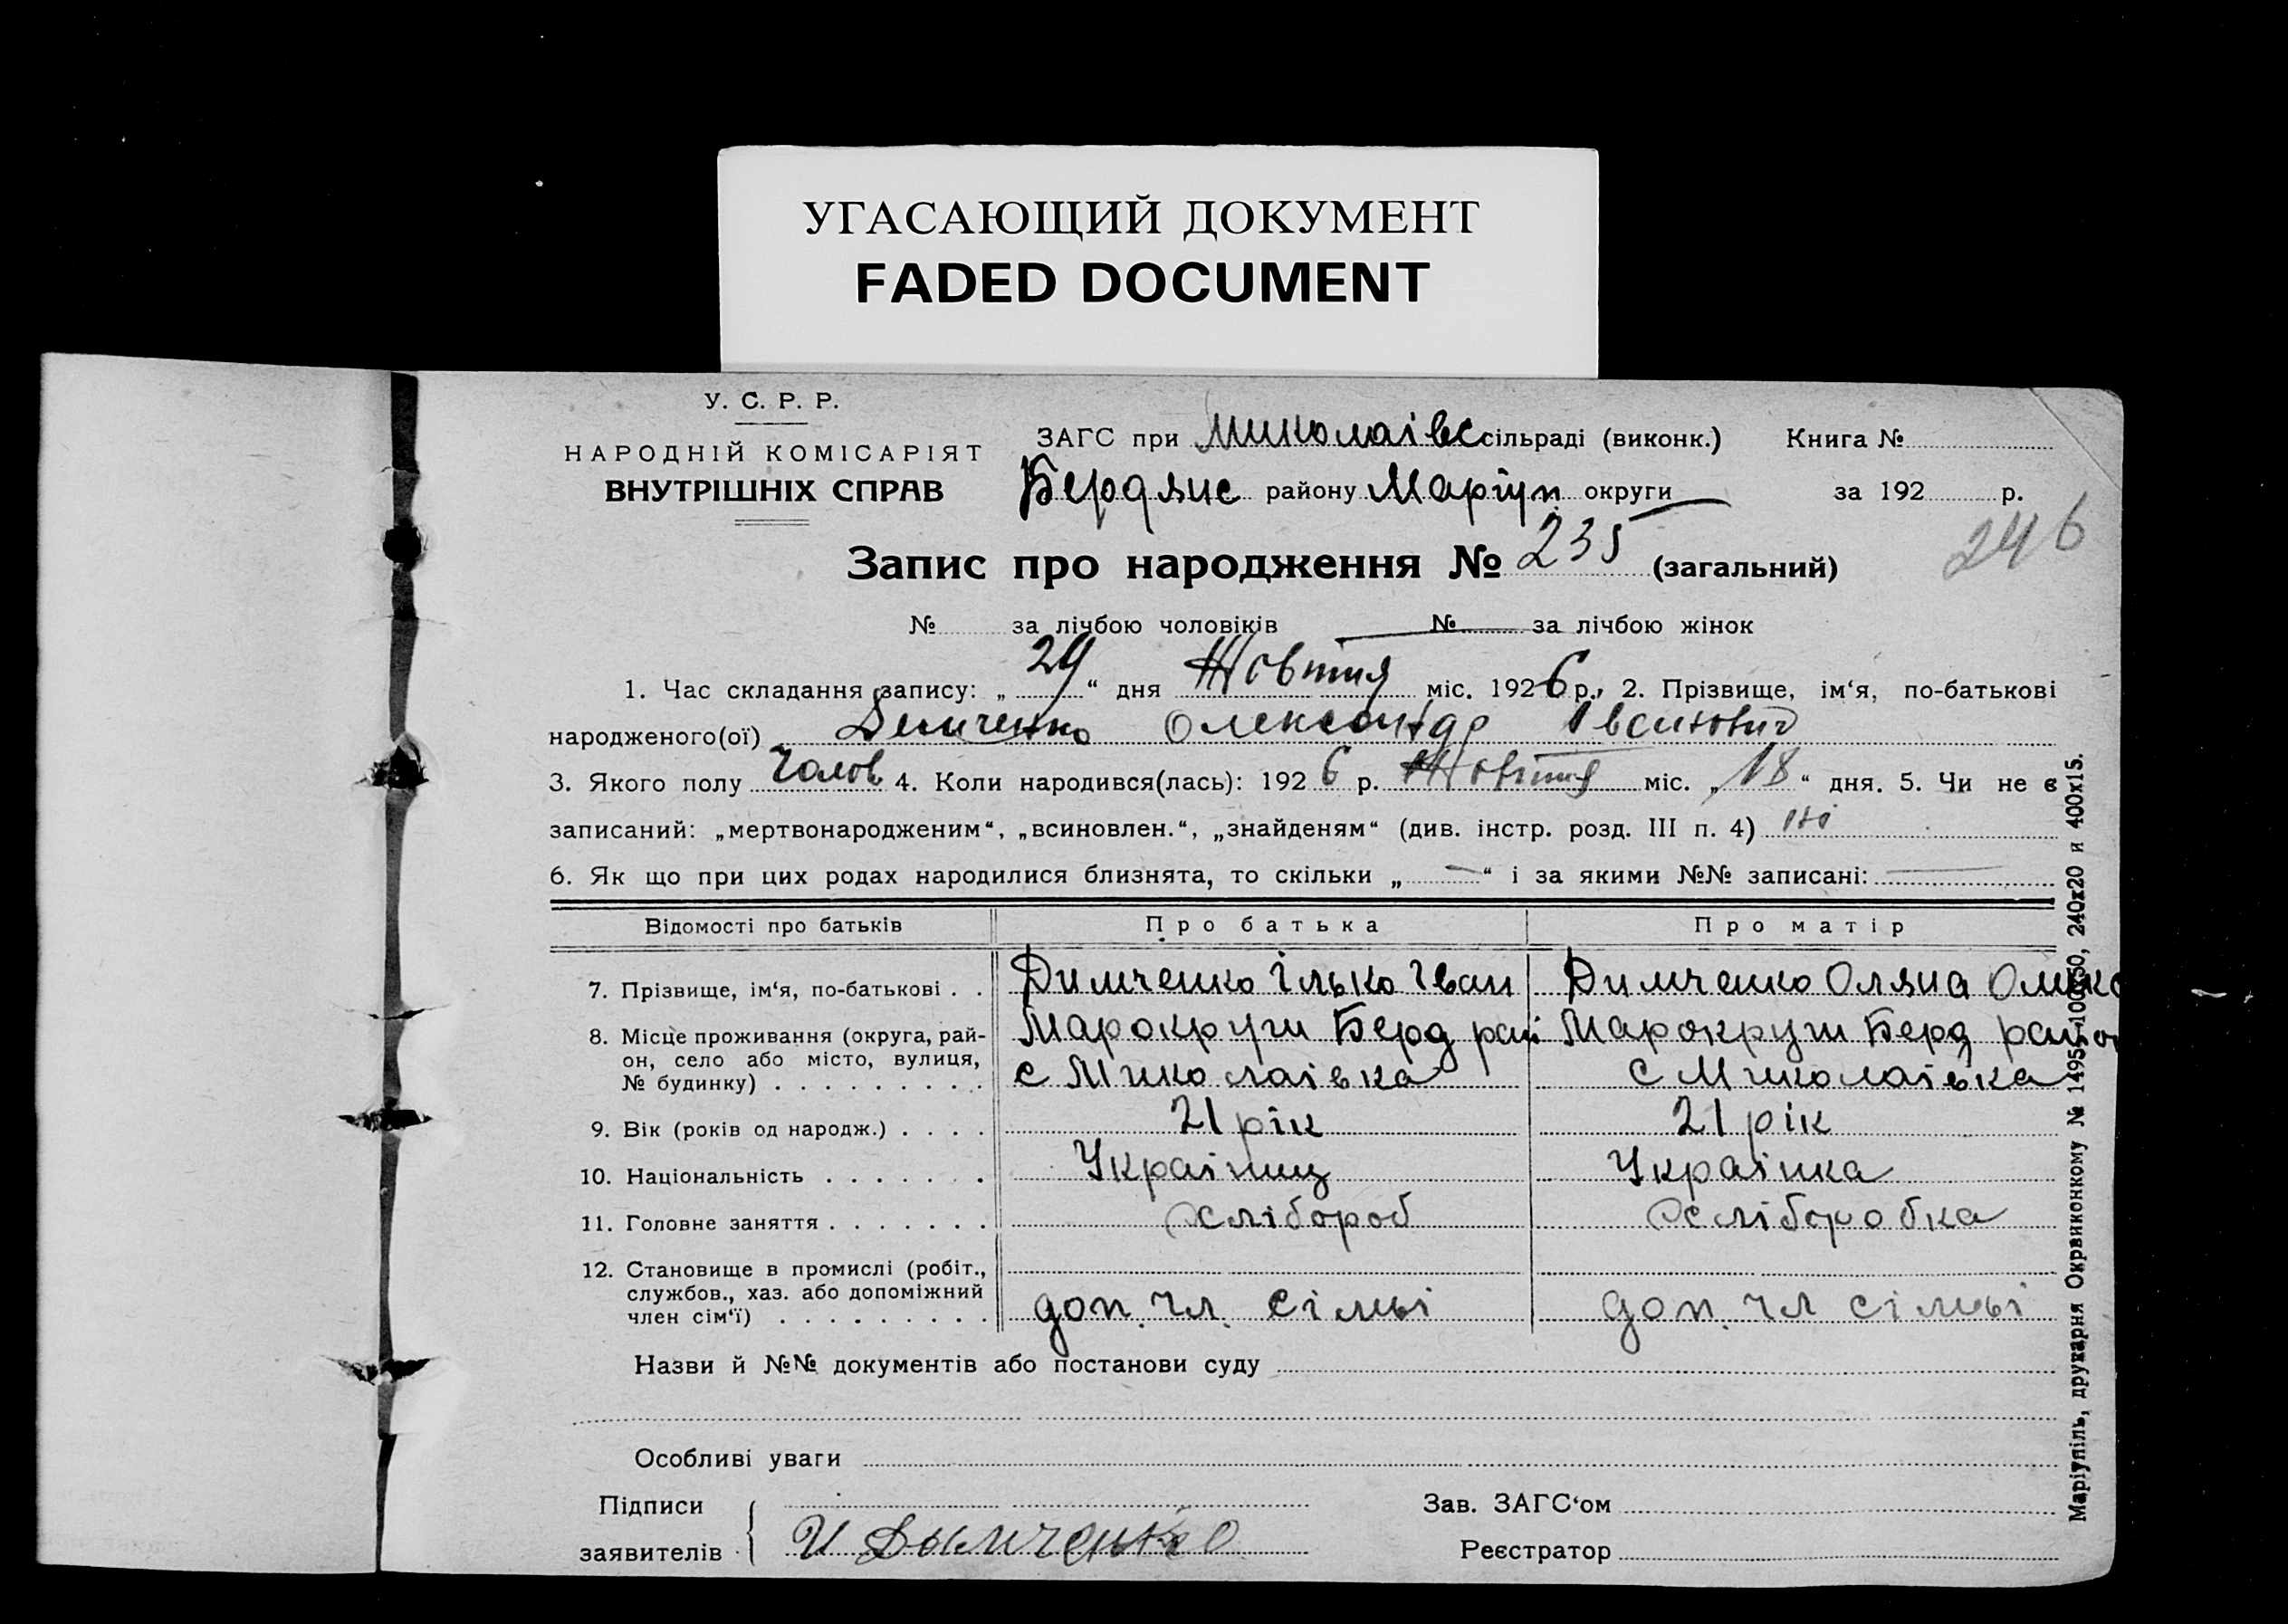 УГАСАЮЩИЙ ДОКУМЕНТ
FADED DOCUMENT
У. С. Р. Р.
НАРОДНІЙ КОМІСАРІЯТ
ВНУТРІШНІХ СПРАВ
ЗАГС при Миколаівс сільраді (виконк.) Книга №
Бердянс району Маріуп. округи за 192 р.
246
Запис про народження № 235 (загальний)
№ за лічбою чоловіків № за лічбою жінок
1. Час складання запису: „ 29 “ дня Жовтня міс. 1926 р., 2. Прізвище, ім‘я, по-батькові
народженого(ої) Демченко Олександр
3. Якого полу Чолов 4. Коли народився(лась): 1926 р. Жовтня міс. „ 18 “ дня. 5. Чи не є
записаний: „мертвонародженим“, „всиновлен.“, „знайденям“ (див. інстр. розд. III п. 4) ні
6. Як що при цих родах народилися близнята, то скільки „ — “ і за якими №№ записані: —
Відомості про батьків Про батька Про матір
7. Прізвище, ім‘я, по-батькові . . Димченко Ілько Іван Димченко Оляна
8. Місце проживання (округа, рай- Марокруги Берд рай Марокруги Берд район
он, село або місто, вулиця,
№ будинку) . . . . . . . . . с Миколаівка с Миколаівка
9. Вік (років од народж.) . . . . 21 рік 21 рік
10. Національність . . . . . . . Украінец Украінка
11. Головне заняття . . . . . . . Хлібороб Хлiборобка
12. Становище в промислі (робіт.,
службов., хаз. або допоміжний
член сім‘ї) . . . . . . . . . доп. чл. сімьі доп. чл сімьі
Назви й №№ документів або постанови суду
Особливі уваги
Підписи Зав. ЗАГС‘ом
заявителів И Дымченко Реєстратор
Маріупіль, друкарня Окрвиконкому № 1495-100х50, 240х20 и 400х15.